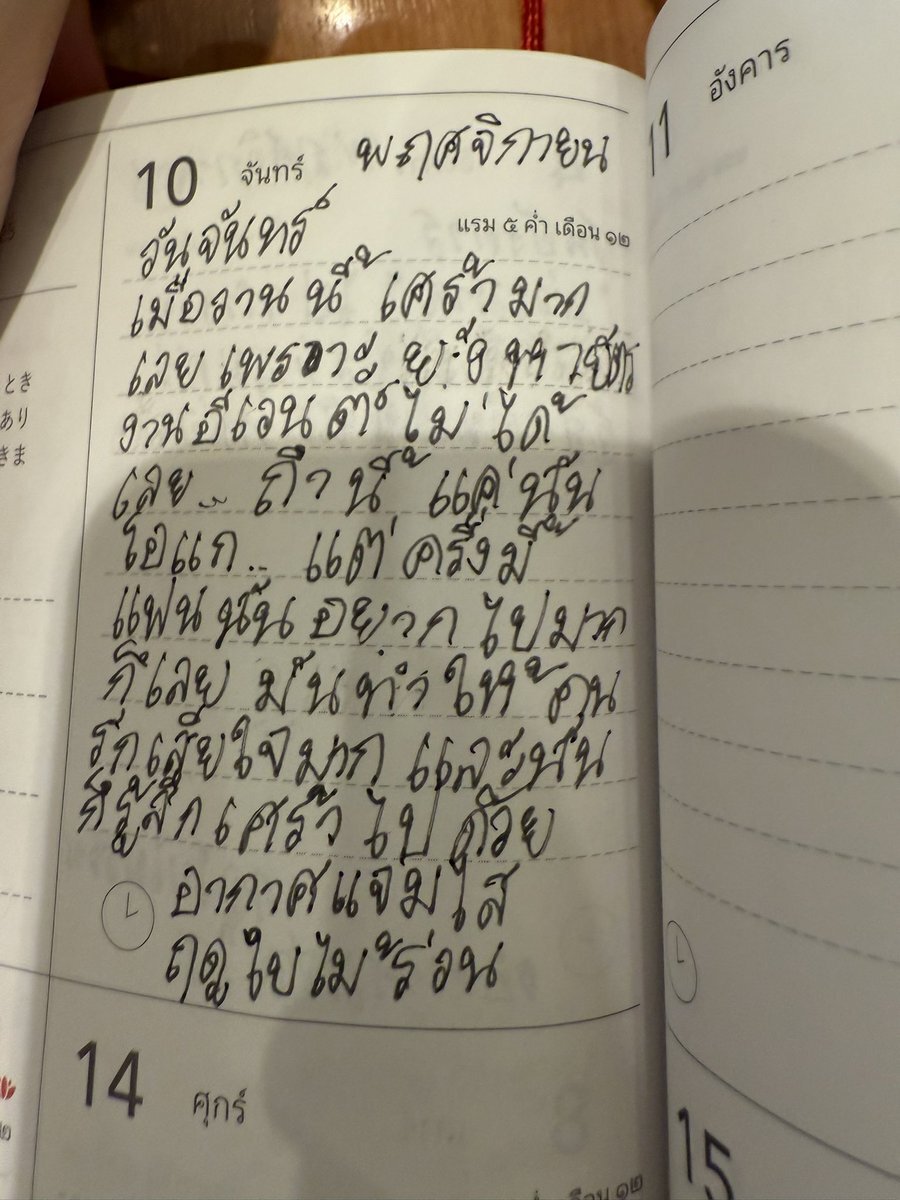 とき
あり
きま
10 จันทร์ พฤศจิกายน
แรม ๕ ค่ำ เดือน ๑๒
วันจันทร์
เมื่อวานนี้ เศร้ามาก
เลย เพราะ ยัง หาบัตร
งานอีเวนต์ไม่ได้
เลย.. ถ้านี้ แค่นั้น
โอแก.. แต่ครั้งมี
แฟนนั้น อยากไปมาก
ก็เลย มันทำให้คุน
รักเสียใจมาก และฉัน
ก็รู้สึกเศร้าไปด้วย
อากาศแจ่มใส
ฤดูใบไม้ร่วน
14 ศุกร์
11 อังคาร
15
ค่ำ เดือน ๑๒